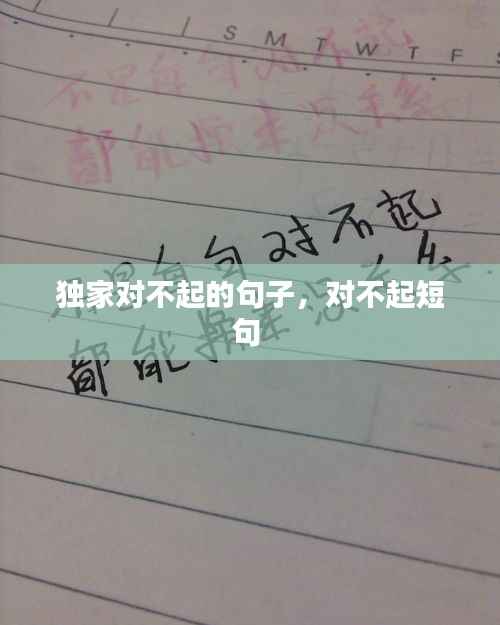 S M T W T F S
不是每句对不起
都能换来没关系
不是每句对不起
都能换来没关系
独家对不起的句子，对不起短
句